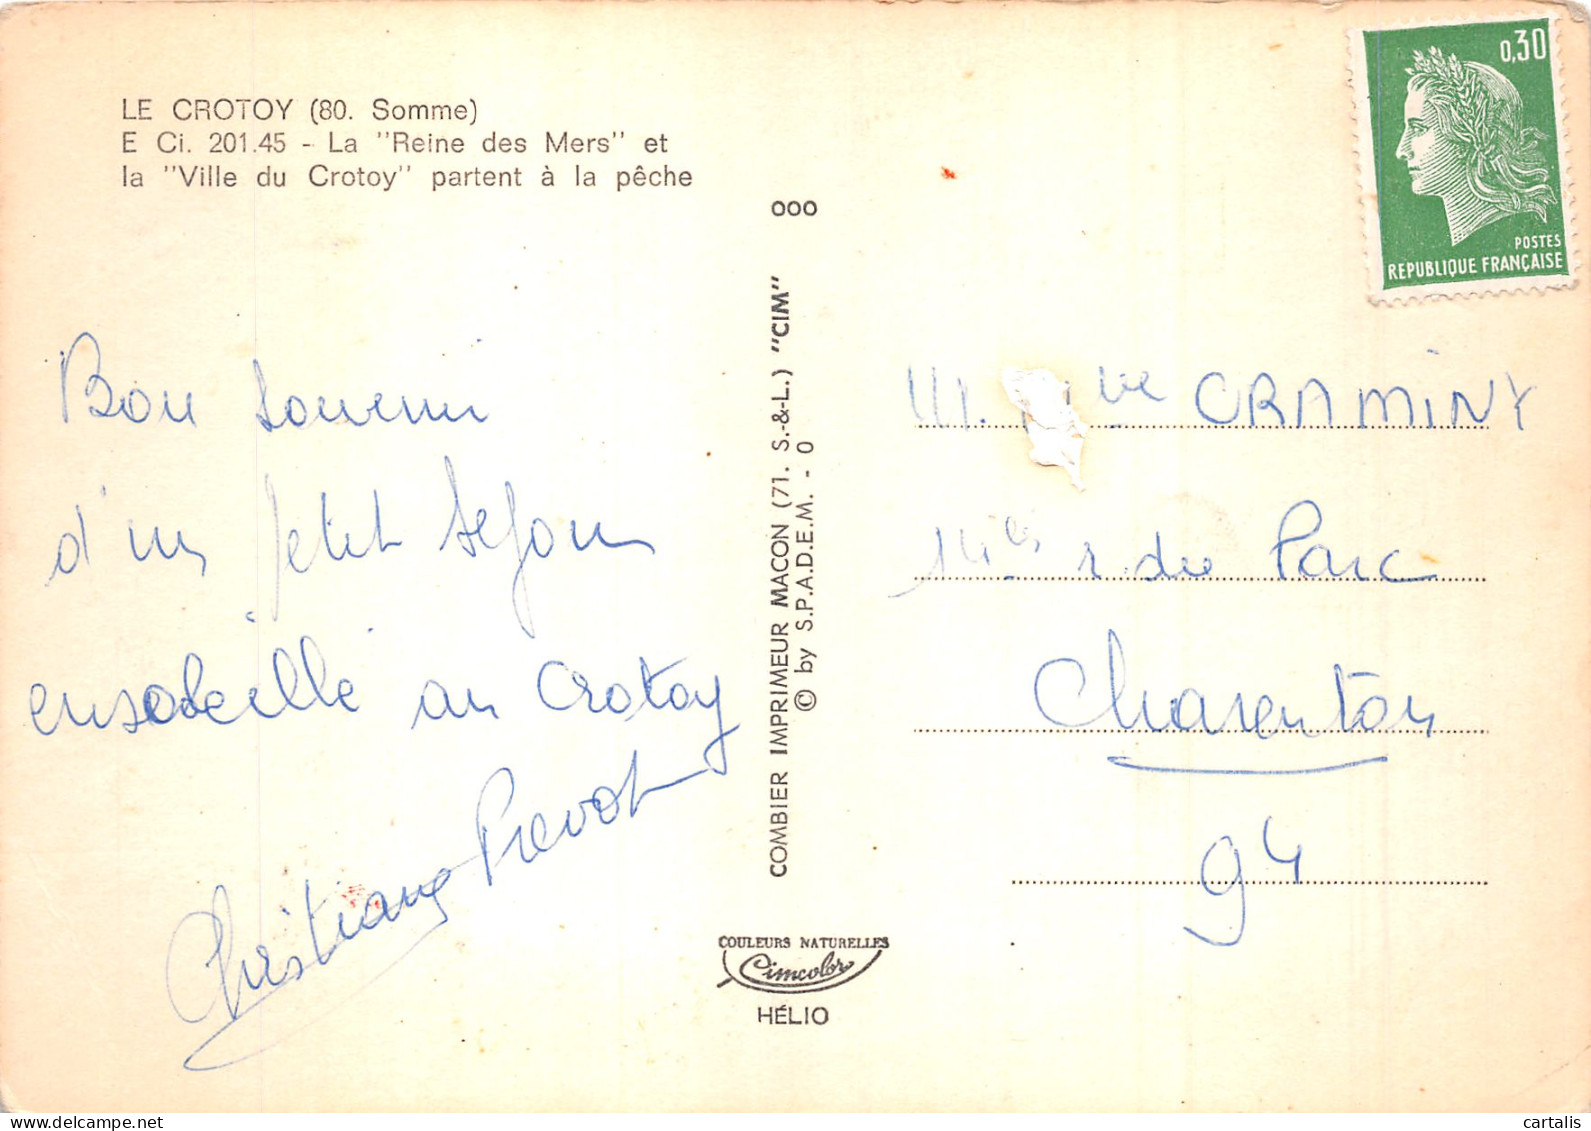 LE CROTOY (80. Somme)
E Ci. 201.45 - La "Reine des Mers" et
la "Ville du Crotoy" partent à la pêche
Bon souvenir
d'un petit séjour
ensoleillé au Crotoy
Christiane Prevot
COMBIER IMPRIMEUR MACON (71. S.-&-L.) "CIM"
© by S.P.A.D.E.M. - 0
000
COULEURS NATURELLES
Cimcolor
HÉLIO
0,30
POSTES
REPUBLIQUE FRANÇAISE
M. CRAMINY
14 bis r. du Parc
Charenton
94
delcampe.net
cartalis